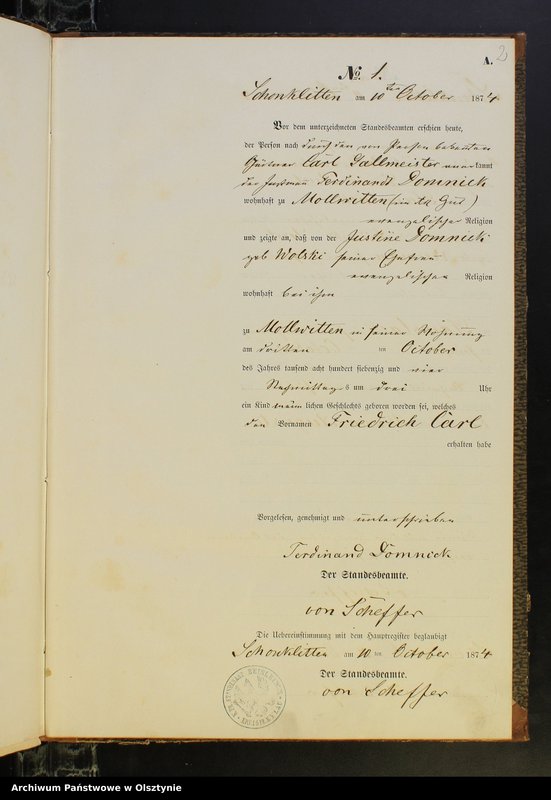 A. 2
No. 1.
Schonklitten am 10ten October 1874
Vor dem unterzeichneten Standesbeamten erschien heute,
der Person nach durch den von Person bekannten
Carl Sallmeister anerkannt
der Instmann Ferdinandt Domnick
wohnhaft zu Mollwitten
evangelischer Religion
und zeigte an, daß von der Justine Domnick
geb Wolski seiner Ehefrau
evangelischer Religion
wohnhaft bei ihm
zu Mollwitten in seiner Wohnung
am dritten ten October
des Jahres tausend acht hundert siebenzig und vier
Nachmittags um drei Uhr
ein Kind männlichen Geschlechts geboren worden sei, welches
den Vornamen Friedrich Carl
erhalten habe
Vorgelesen, genehmigt und unterschrieben
Ferdinand Domnick
Der Standesbeamte.
von Scheffer
Die Uebereinstimmung mit dem Hauptregister beglaubigt
Schonklitten am 10 ten October 1874
Der Standesbeamte.
von Scheffer
Archiwum Państwowe w Olsztynie